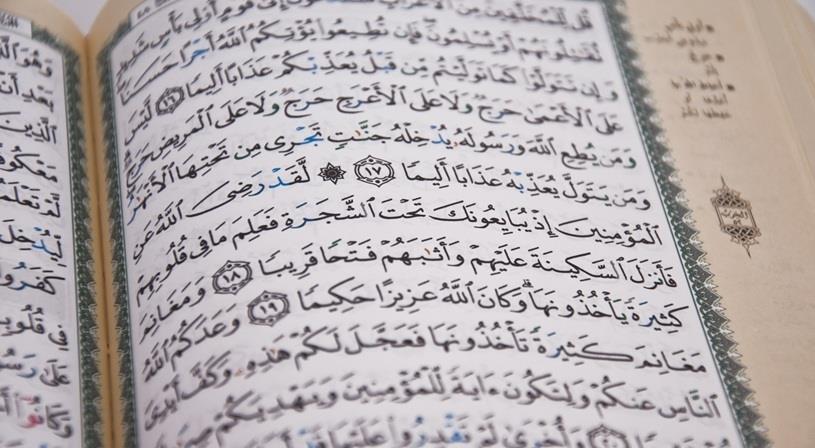 قُل لِّلْمُخَلَّفِينَ مِنَ ٱلْأَعْرَابِ سَتُدْعَوْنَ إِلَىٰ قَوْمٍ أُو۟لِى بَأْسٍ شَدِيدٍ
تُقَٰتِلُونَهُمْ أَوْ يُسْلِمُونَ فَإِن تُطِيعُوا۟ يُؤْتِكُمُ ٱللَّهُ أَجْرًا حَسَنًا
وَإِن تَتَوَلَّوْا۟ كَمَا تَوَلَّيْتُم مِّن قَبْلُ يُعَذِّبْكُمْ عَذَابًا أَلِيمًا ١٦ لَّيْسَ
عَلَى ٱلْأَعْمَىٰ حَرَجٌ وَلَا عَلَى ٱلْأَعْرَجِ حَرَجٌ وَلَا عَلَى ٱلْمَرِيضِ حَرَجٌ
وَمَن يُطِعِ ٱللَّهَ وَرَسُولَهُۥ يُدْخِلْهُ جَنَّٰتٍ تَجْرِى مِن تَحْتِهَا ٱلْأَنْهَٰرُ
وَمَن يَتَوَلَّ يُعَذِّبْهُ عَذَابًا أَلِيمًا ١٧ ۞ لَّقَدْ رَضِىَ ٱللَّهُ عَنِ
ٱلْمُؤْمِنِينَ إِذْ يُبَايِعُونَكَ تَحْتَ ٱلشَّجَرَةِ فَعَلِمَ مَا فِى قُلُوبِهِمْ
فَأَنزَلَ ٱلسَّكِينَةَ عَلَيْهِمْ وَأَثَٰبَهُمْ فَتْحًا قَرِيبًا ١٨ وَمَغَانِمَ
كَثِيرَةً يَأْخُذُونَهَا وَكَانَ ٱللَّهُ عَزِيزًا حَكِيمًا ١٩ وَعَدَكُمُ ٱللَّهُ
مَغَانِمَ كَثِيرَةً تَأْخُذُونَهَا فَعَجَّلَ لَكُمْ هَٰذِهِۦ وَكَفَّ أَيْدِىَ
ٱلنَّاسِ عَنكُمْ وَلِتَكُونَ ءَايَةً لِّلْمُؤْمِنِينَ وَيَهْدِيَكُمْ
وَأُخْرَىٰ لَمْ تَقْدِرُوا۟ عَلَيْهَا قَدْ
وَهُوَ
بَعْدِ أَنْ
ٱلَّذِينَ
كَفَرُوا۟
عَلَىٰ
وَكَانُوٓا۟